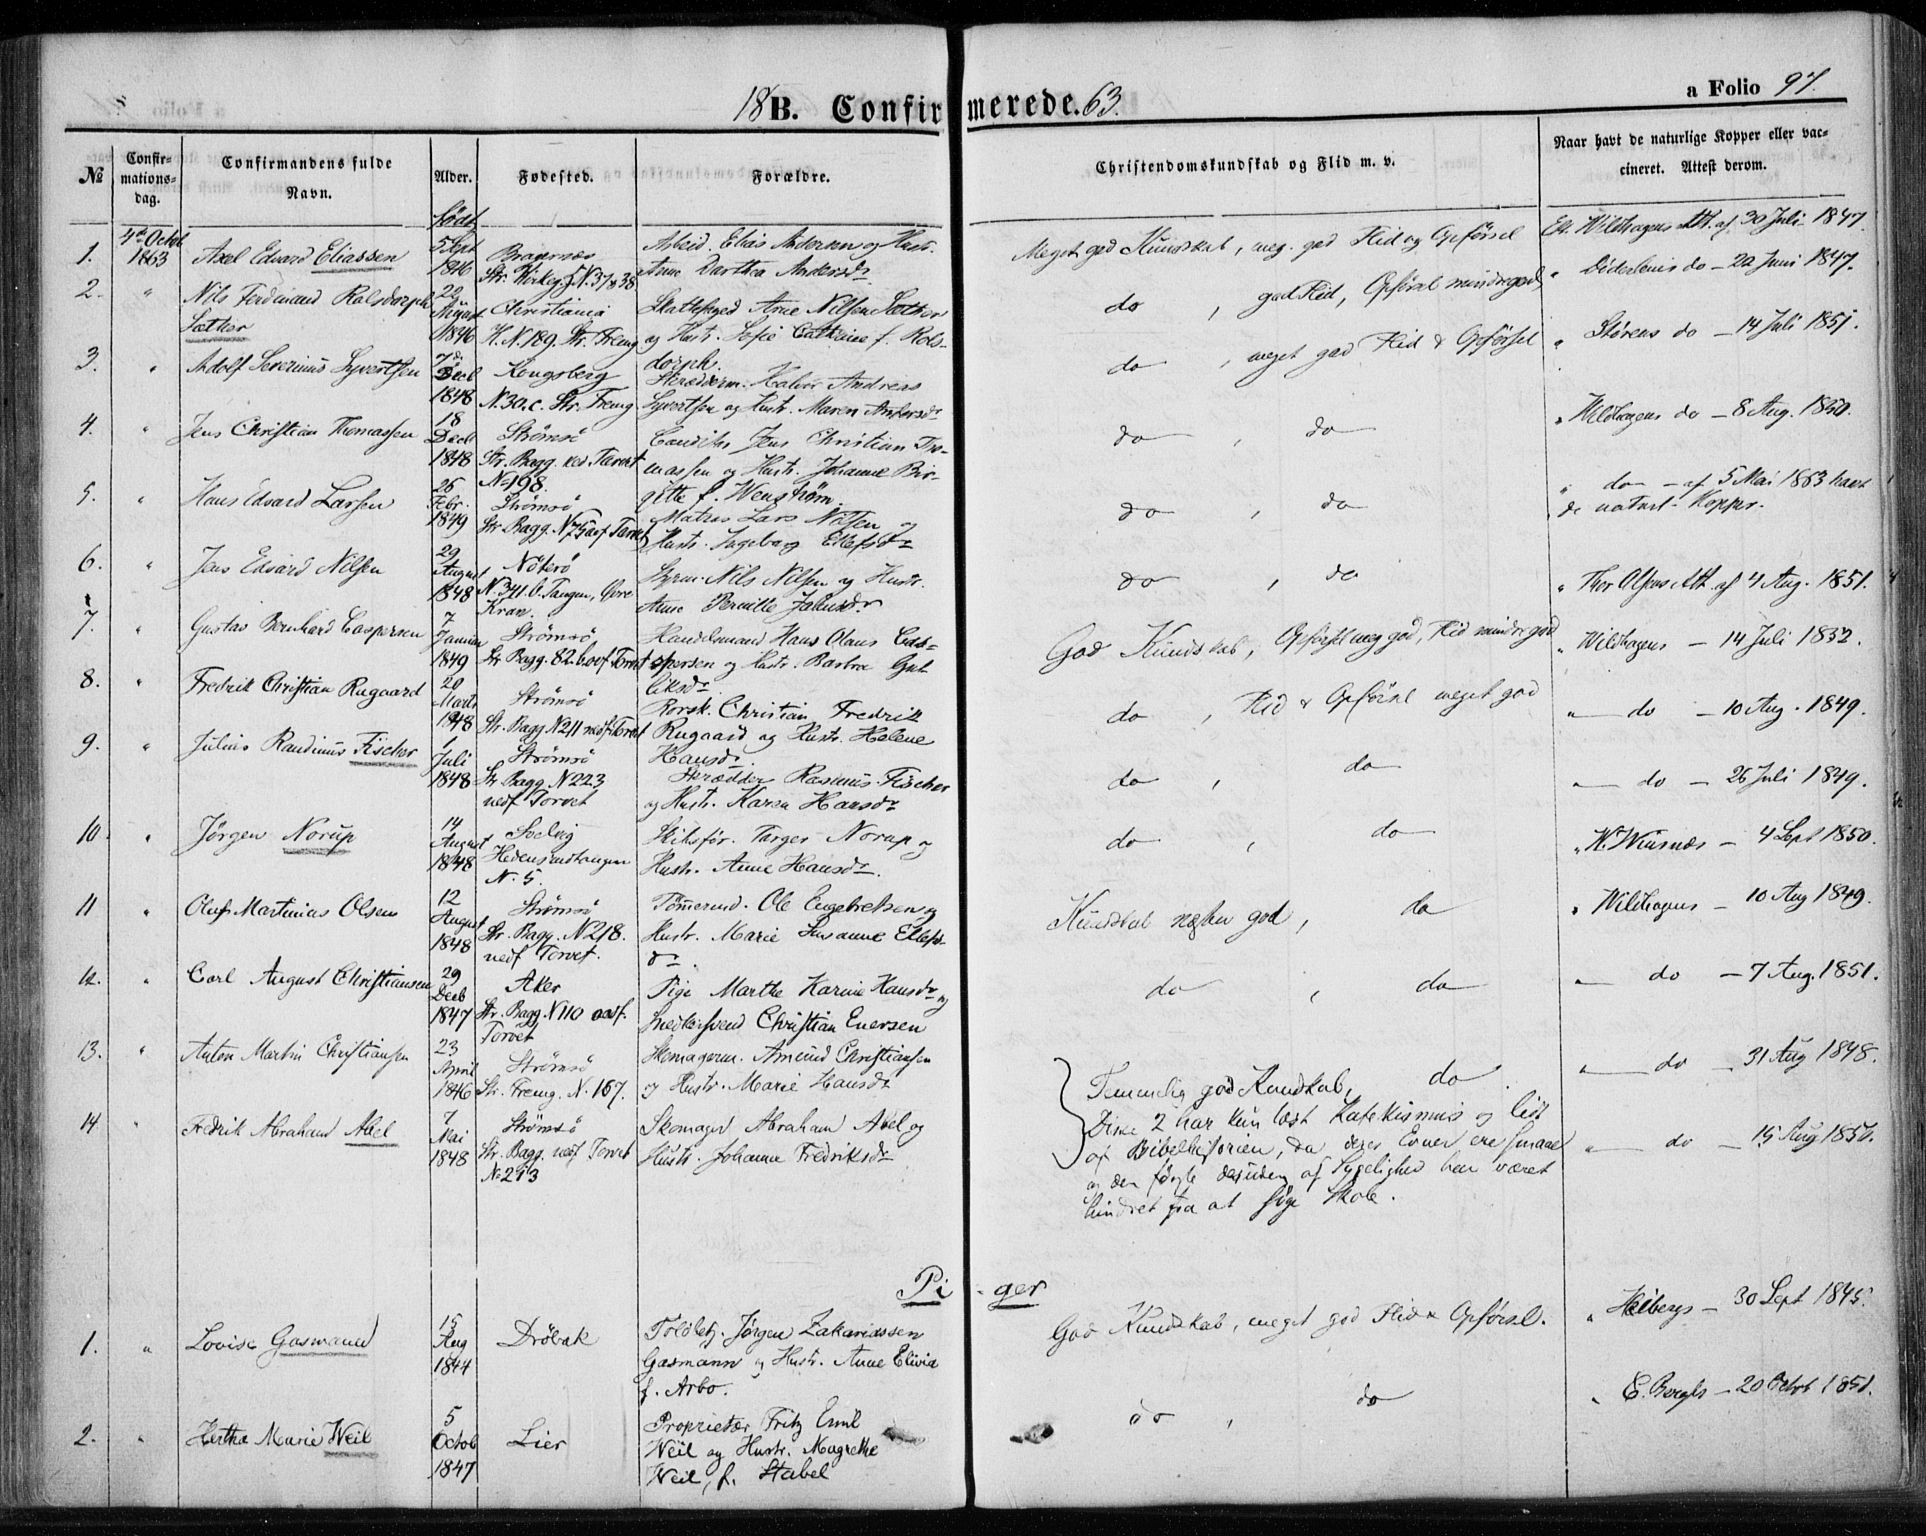 18 B. Confirmerede. 63.
a Folio 97.
№
Confirmationsdag.
Confirmandens fulde Navn.
Alder.
Fødested.
Forældre.
Christendomskundskab og Flid m. v.
Naar havt de naturlige Kopper eller vaccineret. Attest derom.
født
1. 4de Octob 1863 Axel Edvard Eliassen 5 Sept 1846 Bragernæs Str. N. 37 & 38
Arbeid. Elias Andersen og Hustr. Anne Dorthea Andersdr
Meget god Kundskab, meg. god Flid og Opførsel
Wildhagens Att. af 30 Juli 1847.
2. " Nils Ferdinand Rolsdorph Sæther 22 August 1846 Christiania H. N. 189. Str. Freng
Skattefoged Arne Nilsen Sæther og Hustr. Sofie Cathrine f. Rolsdorph.
do, god Flid, Opførsel mindre god
" do – 22 Juni 1847.
3. " Adolf Severinus Syvertsen 7de Decb 1848 Kongsberg N. 30.c. Str. Freng
Skrædderm. Halvor Andreas Syvertsen og Hustr. Maren Andersdr
do, meget god Flid & Opførsel
" Størens do – 14 Juli 1851.
4. " Jens Christian Thomassen 18 Decb 1848 Strømsö Str. Bagg. ved Torvet N. 198.
Jens Christian Thomassen og Hustr. Johanne Birgitte f. Wenstrøm.
do, do
" Wildhagens do – 8 Aug. 1850.
5. " Hans Edvard Larsen 26 Febr. 1849 Strømsö Str. Bagg. N. 75 ovf. Torvet
Matros Lars Nilsen og Hustr. Ingeborg Ellefsdr
do, do
" do – af 5 Mai 1863 havt de naturl. Kopper.
6. " Jens Edvard Nilsen 29 August 1848 Nöterö N. 341.b. Tangen, Øvre Kran.
Styrm. Nils Nilsen og Hustr. Anne Pernille Johnsdr
do, do
" Thor Olsens Att. af 4 Aug. 1851.
7. " Gustav Bernhard Caspersen 7 Januar 1849 Strømsö Str. Bagg. 82.b. ovf. Torvet
Handelsmand Hans Olaus Caspersen og Hustr. Gulliksdr.
God Kundskab, Opførsel meg god, Flid mindre god
" Wildhagens – 14 Juli 1852.
8. " Fredrik Christian Rugaard 20 Marts 1848 Strømsö Str. Bagg N. 211 nedf. Torvet
Christian Fredrik Rugaard og Hustr. Helene Hansdr.
do, Flid & Opførsel meget god
" do – 10 Aug. 1849.
9. " Julius Randinius Fischer 1 Juli 1848 Strømsö Str. Bagg. N. 223 nedf Torvet
Skrædder Rasmus Fischer og Hustr. Karen Hansdr
do, do
" do – 26 Juli 1849.
10. " Jørgen Norup 14 August 1848 Solvig Hedensrudtangen N. 5.
Skibsför. Targer Norup og Hustr. Anne Hansdr.
do, do
" N. Winsnæs – 4 Sept 1850.
11 " Oluf Martinius Olsen 12 August 1848 Strømsö Str. Bagg. N. 218. nedf Torvet.
Tömmermd. Ole Engebretsen og Hustr. Marie Susanne Ellefsdr.
Kundskab næsten god, do
" Wildhagens – 10 Aug 1849.
12. " Carl August Christiansen 29 Decb 1847 Aker Str. Bagg. N 110 ovf. Torvet
Pige Marthe Karine Hansdr og Snedkersvend Christian Enersen
do, do
" do – 7 Aug. 1851.
13. " Anton Martin Christiansen 23 April 1846 Strømsö Str. Freng. N. 167.
Skomagerm. Amund Christiansen og Hustr. Marie Hansdr
Temmelig god Kundskab, do.
" do – 31 Aug 1848.
14 " Fredrik Abraham Abel 7 Mai 1848 Strømsö Str. Bagg. nedf Torvet N. 293
Skomager Abraham Abel og Hustr. Johanne Fredriksdr
Disse 2 har kun læst Katekismus og lidt
af Bibelhistorien, da deres Evner ere smaae
og den første desuden af Sygelighed har været
hindret fra at søge Skole.
" do – 15 Aug 1850.
Piger
1. " Lovise Gasmann 15 Aug 1844 Drøbak
Toldbetj. Jørgen Zakariassen Gasmann og Hustr. Anne Elivia f. Arbo.
God Kundskab, meget god Flid & Opførsel.
" Heibergs – 30 Sept 1845.
2. " Hertha Marie Weil 5 Octob 1847 Lier
Proprietær Fritz Emil Weil og Hustr. Magrethe Weil, f. Stabel
do, do
" E. Berghs – 20 Octob 1851.